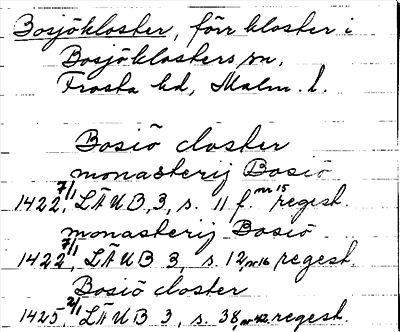 Bosjökloster, förr kloster i
Bosjöklosters sn,
Frosta hd, Malm. l.
Bosiö closter
monasterij Bosiö
1422 7/1, LÄUB 3, s. 11 f. nr 15 regest.
monasterij Bosiö
1422 7/1, LÄUB 3, s. 12, nr 16 regest.
Bosiö closter
1425 2/1, LÄUB 3, s. 38, nr 42 regest.